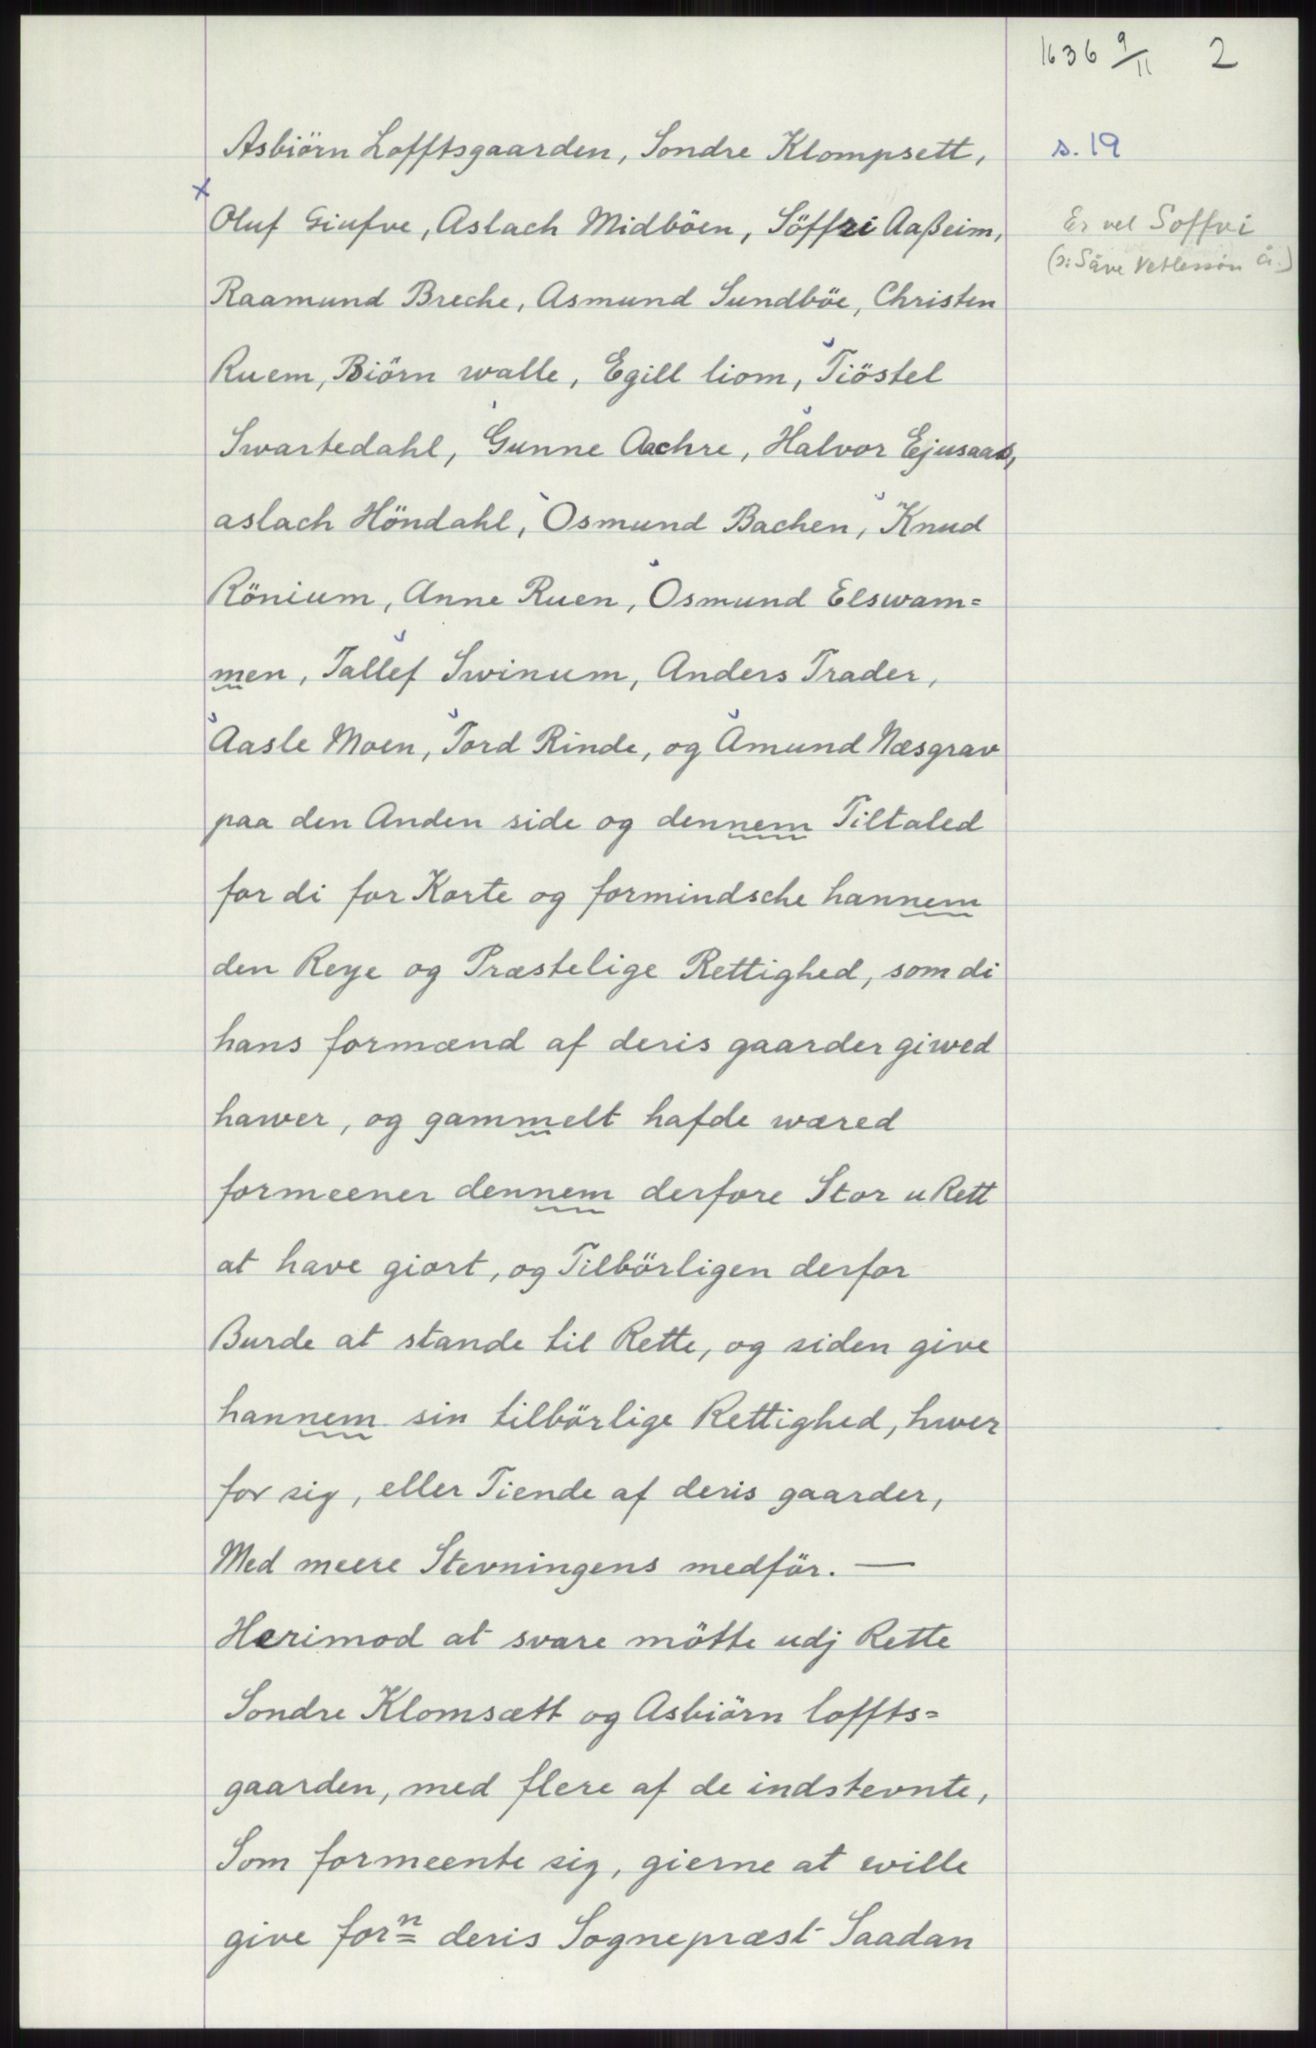 1636 9/11 2
Asbiörn Lofftsgaarden, Sondre Klompsett,
s. 19
x
Oluf Giufve, Aslach Midböen, Söffri Aaßeim,
Er vel Soffvi
(ɔ: Såve Vetlessön Å.)
Raamund Breche, Asmund Sundböe, Christen
Ruem, Biörn walle, Egill liom, Tiöstel
Swartedahl, Gunne Aachre, Halvor Ejusaas,
aslach Höndahl, Osmund Bachen, Knud
Rönium, Anne Ruen, Osmund Elswam=
men, Tallef Swinum, Anders Trader,
Aasle Moen, Tord Rinde, og Amund Næsgrav
paa den Anden side og dennem Tiltaled
for di for Korte og formindsche hannem
den Reye og Præstelige Rettighed, som di
hans formænd af deris gaarder giwed
hawer, og gammelt hafde wæred
formeener dennem derfore Stor uRett
at have giort, og Tilbörligen derfor
Burde at stande til Rette, og siden give
hannem sin tilbörlige Rettighed, hwer
for sig, eller Tiende af deris gaarder,
Med meere Stevningens medför. —
Herimod at svare mötte udj Rette
Sondre Klomsætt og Asbiörn loffts=
gaarden, med flere af de indstevnte,
Som formeente sig, gierne at wille
give forn deris Sognepræst Saadan